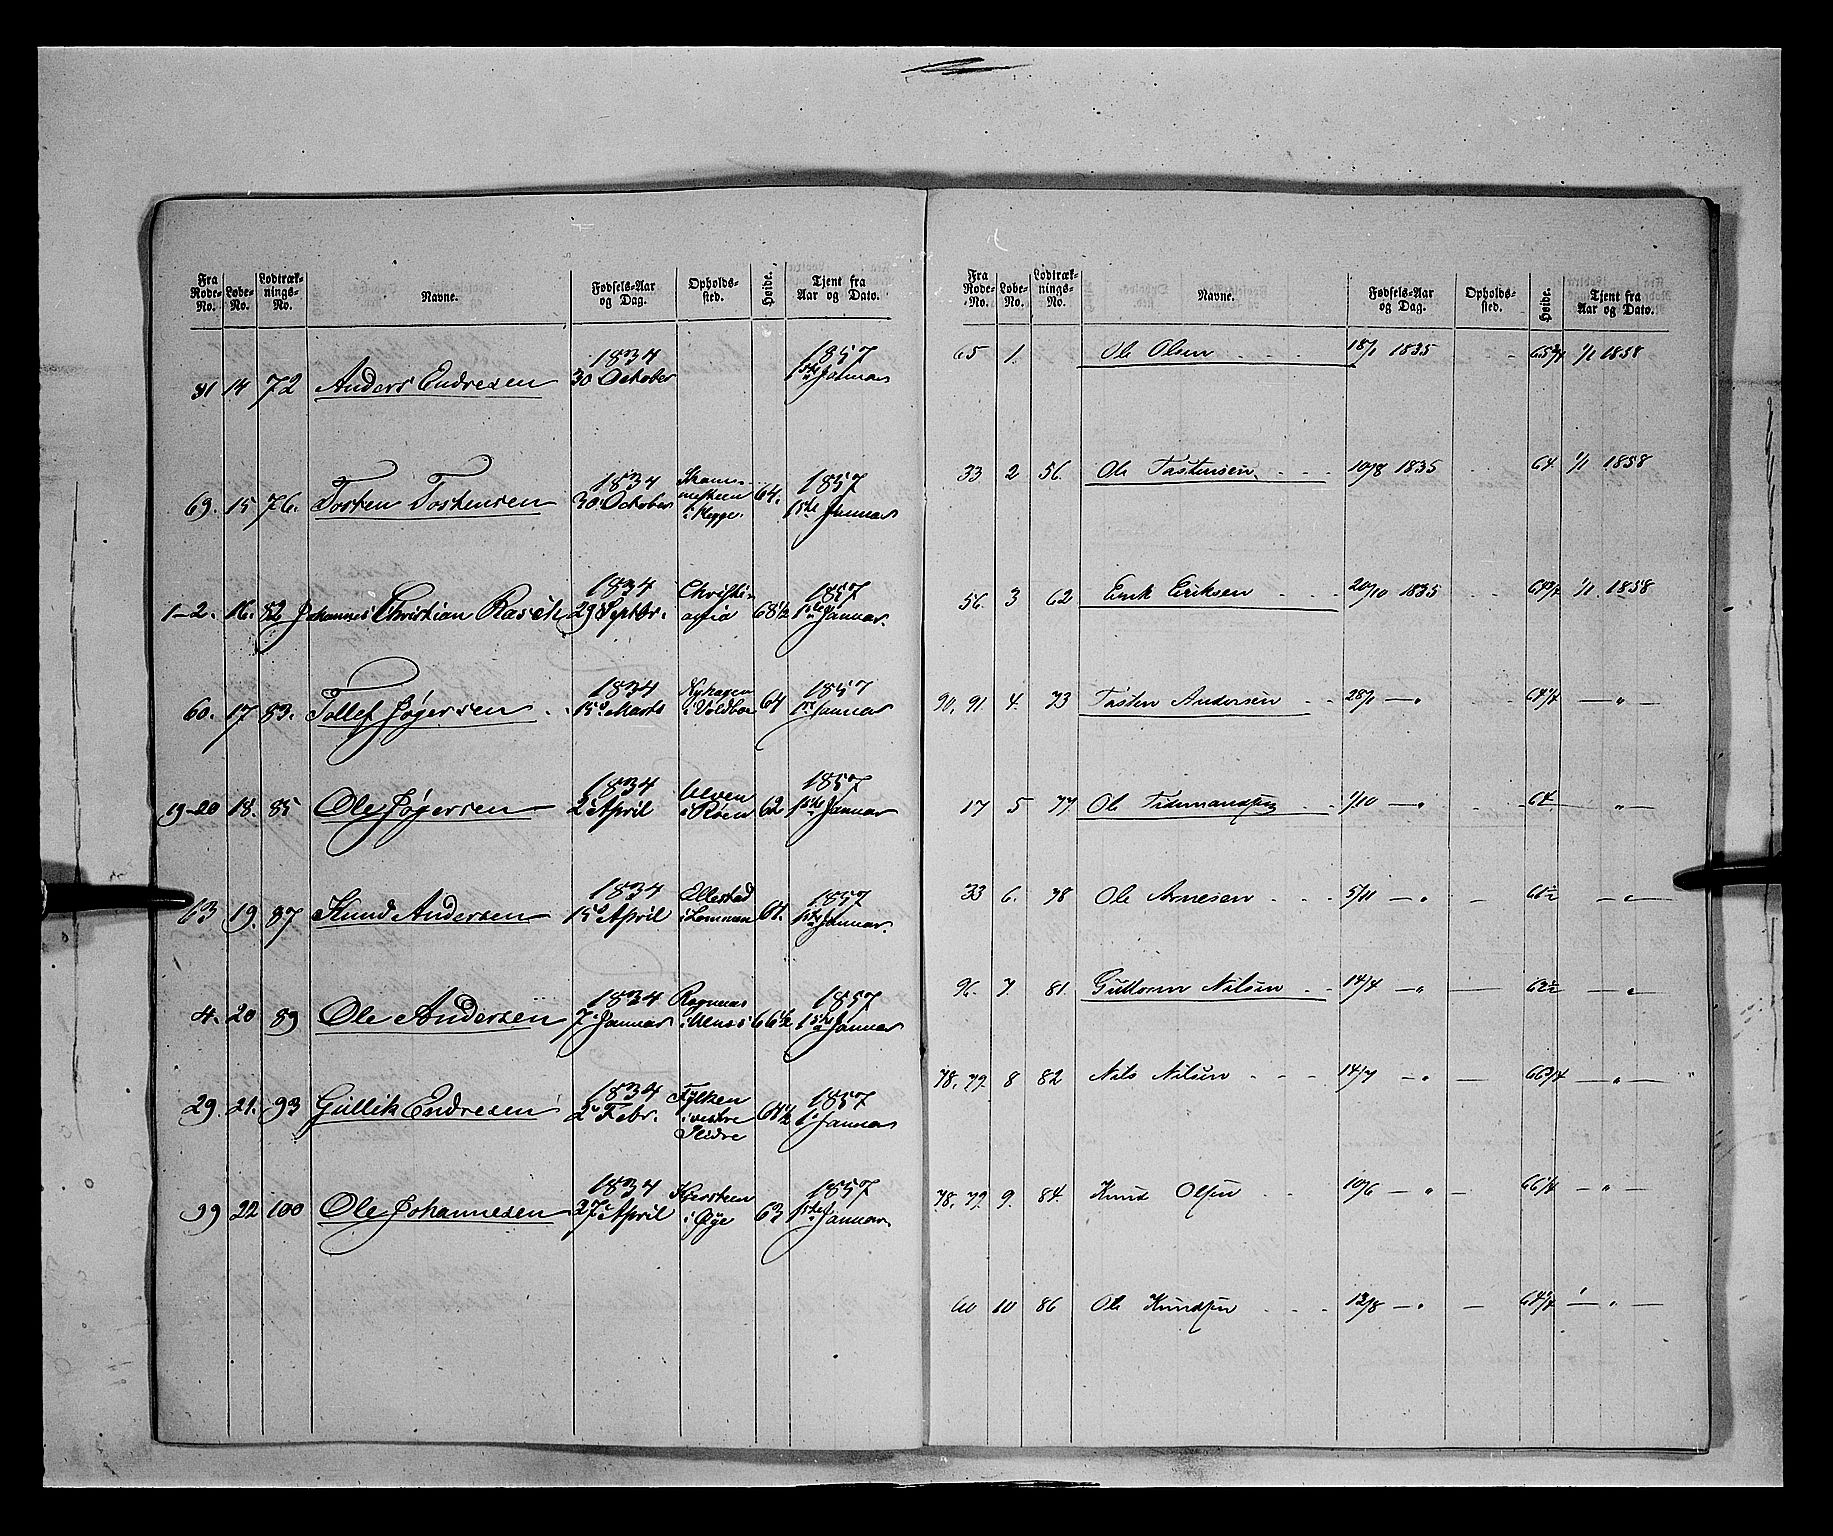 Fra Rode-No. Løbe-No. Lodtræk-nings-No. Navne. Fødsels-Aar og Dag. Opholds-sted. Høide. Tjent fra Aar og Dato.
1834 1857
31 14 72 Anders Endresen 30 October 1ste Januar
1834 1857
69. 15 76. Tosten Tostensen 30 October i Hegge. 64. 1ste Januar
1834 Christi- 1857
1-2. 16. 82 Johannes Christian Rasch 29 Septbr. ania 68½ 1ste Januar.
1834 1857
60. 17 83. Tollef Jøgersen 15de Marts 64 1ste Januar
1834 Ulven 1857
19-20 18. 85 Ole Jøgersen 2den April i Røen 62 1ste Januar
1834 Ellestad 1857
63 19. 87 Knud Andersen 15de April i Lommen 61. 1ste Januar.
1834 Rognaas 1857
4. 20 89 Ole Andersen 7. Januar 66½ 1ste Januar
1834 Fylken 1857
29. 21. 93 Gullik Endresen 2. Febr. i vestre 1. Januar
Slidre
1834 1857
99 22 100 Ole Johannesen 27. April i Øye 63 1ste Januar.
Fra Rode-No. Løbe-No. Lodtræk-nings-No. Navne. Fødsels-Aar og Dag. Opholds-sted. Høide. Tjent fra Aar og Dato.
65 1. Ole Olsen 18/1 1835 65¾ 1/1 1858
33 2 56. Ole Tostensen 10/8 1835 64 1/1 1858
56. 3 62 Erik Eriksen 20/10 1835 64¾ 1/1 1858
90, 91 4. 73 Tosten Andersen 28/1 — " 64¼ — " —
17 5 77 Ole Tidemandsen 1/10 — " 64. — " —
33 6. 78 Ole Arnesen 5/11 — " — 61½ — " —
96. 7. 81. Guttorm Nilsen 14/4 — " — 62½ — " —
78, 79. 8 82 Nils Nilsen 14/7 — " — — " —
78, 79. 9. 84. Knud Olsen 10/6 — " — 66¼ — " —
60 10 86 Ole Knudsen 12/8 — " — 64¼ — " —